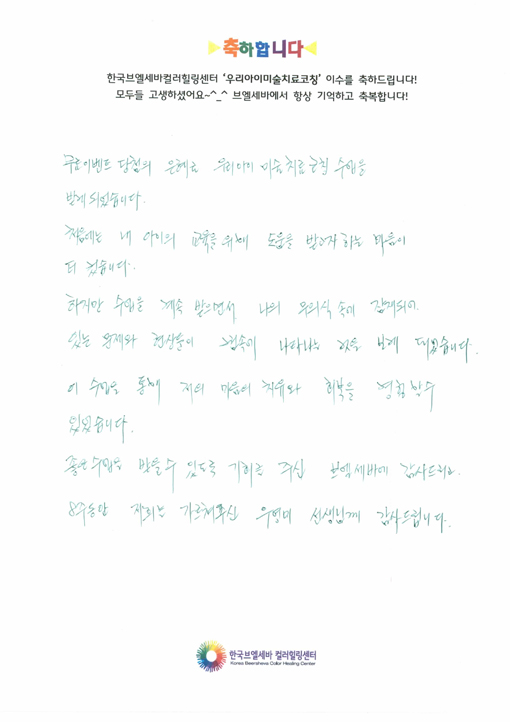 축하합니다
한국브엘세바컬러힐링센터 '우리아이미술치료코칭' 이수를 축하드립니다!
모두들 고생하셨어요~^_^ 브엘세바에서 항상 기억하고 축복합니다!
무료이벤트 당첨의 은혜로 우리아이 미술치료코칭 수업을
받게 되었습니다.
처음에는 내 아이의 교육을 위해 도움을 받고자 하는 마음이
더 컸습니다.
하지만 수업을 계속 받으면서 나의 무의식 속에 잠재되어
있는 문제와 현상들이 그림속에 나타나는 것을 보게 되었습니다.
이 수업을 통해 저의 마음이 치유와 회복을 경험할 수
있었습니다.
좋은 수업을 받을 수 있도록 기회를 주신 브엘세바에 감사드리고
8주동안 지도로 가르쳐주신 우형미 선생님께 감사드립니다.
한국브엘세바 컬러힐링센터
Korea Beersheva Color Healing Center